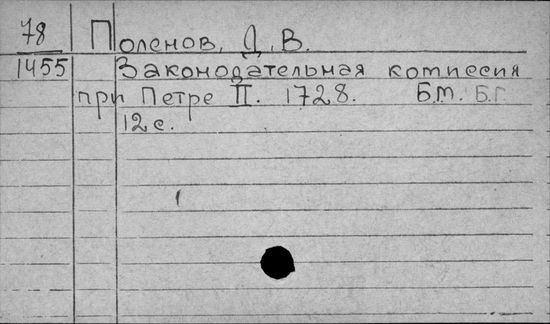 78 Поленов, Д. В.
1455 Законодательная комиссия
при Петре II. 1728. Б.м. Б.Г.
12 с.